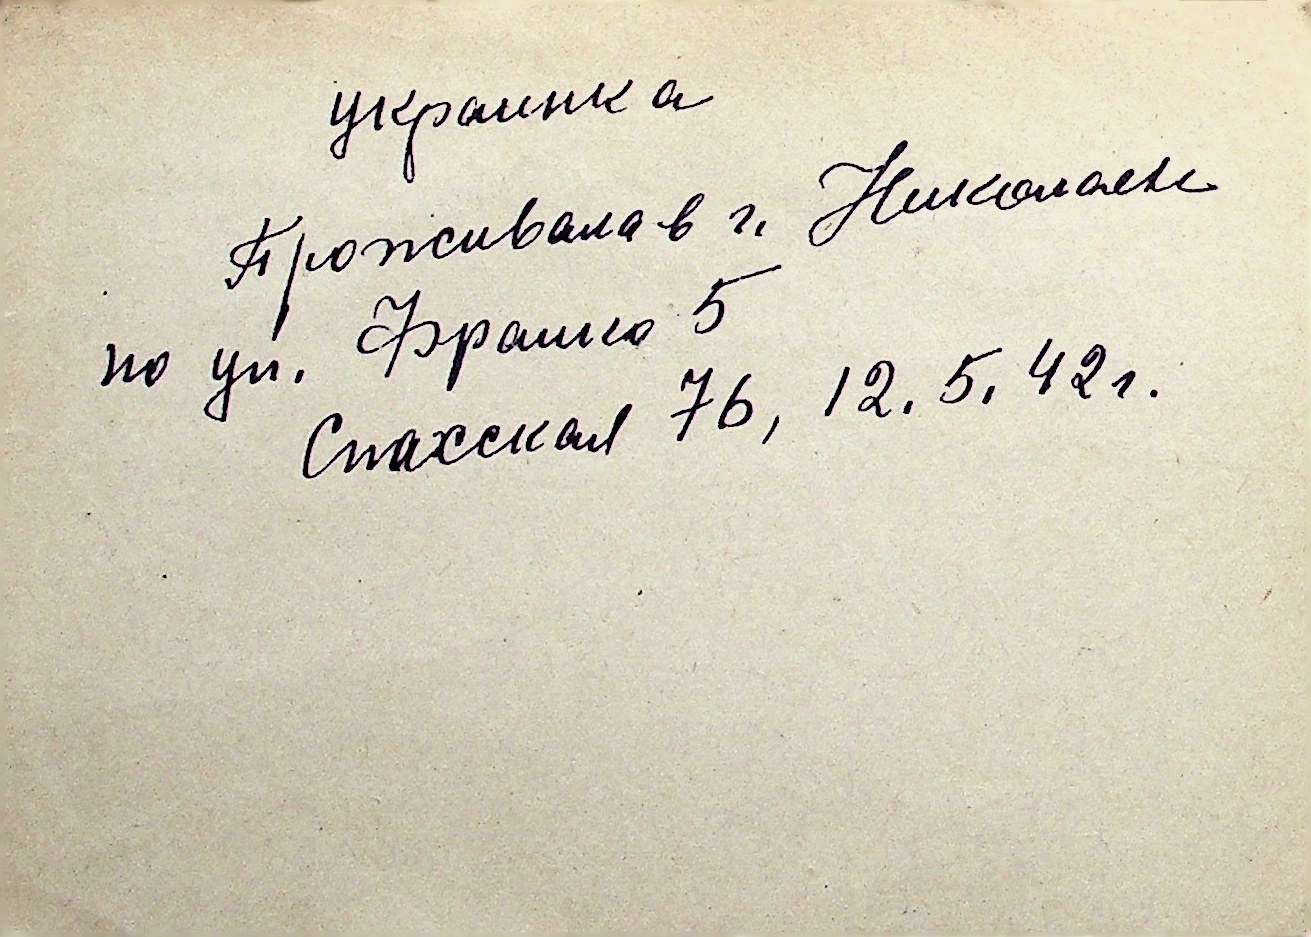 украинка
Проживала в г. Николаеве
по ул. Франко 5
Спасская 76, 12.5.42 г.